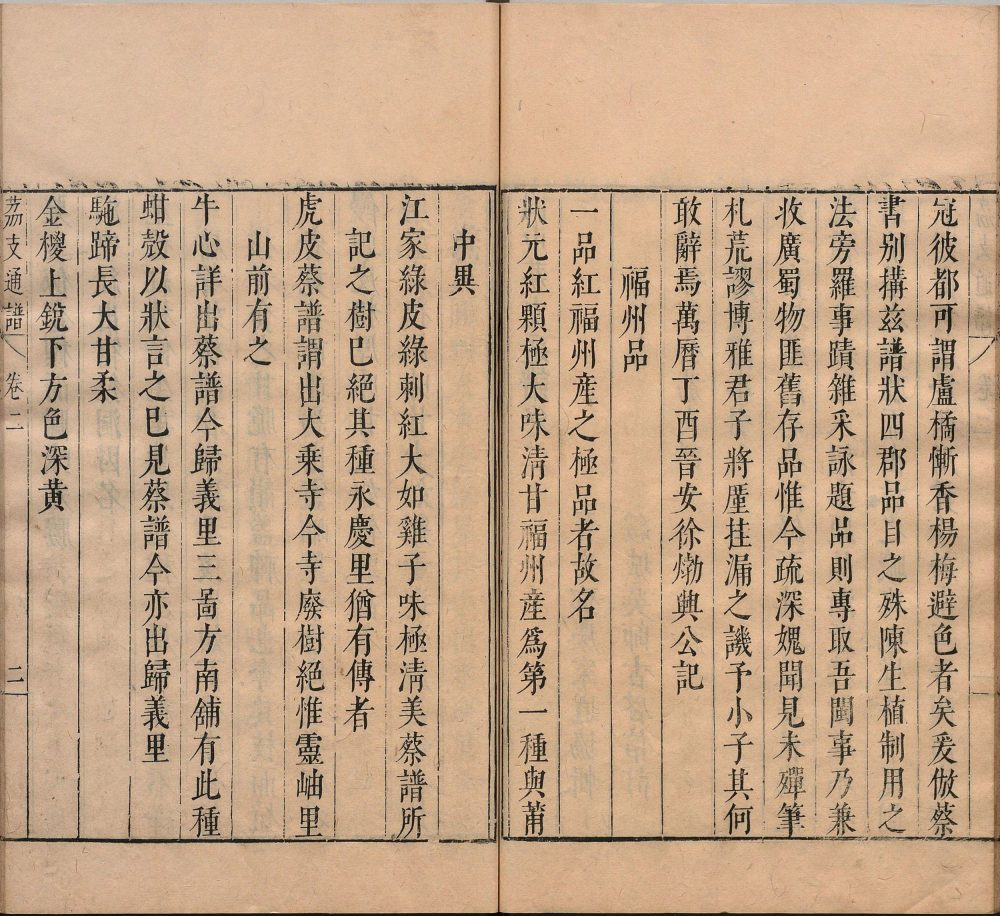 冠彼都可謂盧橘慚香楊梅避色者矣爰倣蔡
書別搆兹譜狀四郡品目之殊陳生植制用之
法旁羅事蹟雜采詠題品則專取吾閩事乃兼
收廣蜀物匪舊存品惟今疏深媿聞見未殫筆
札荒謬博雅君子將厪挂漏之譏予小子其何
敢辭焉萬曆丁酉晉安徐𤊹興公記
福州品
一品紅福州產之極品者故名
狀元紅顆極大味淸甘福州產爲第一種與莆
中異
江家綠皮綠刺紅大如雞子味極淸美蔡譜所
記之樹巳絕其種永慶里猶有傳者
虎皮蔡譜謂出大乗寺今寺廢樹絕惟靈岫里
山前有之
牛心詳出蔡譜今歸義里三啚方南舖有此種
蚶殼以狀言之巳見蔡譜今亦出歸義里
駞蹄長大甘柔
金㮨上銳下方色深黃
荔支通譜 卷二 二